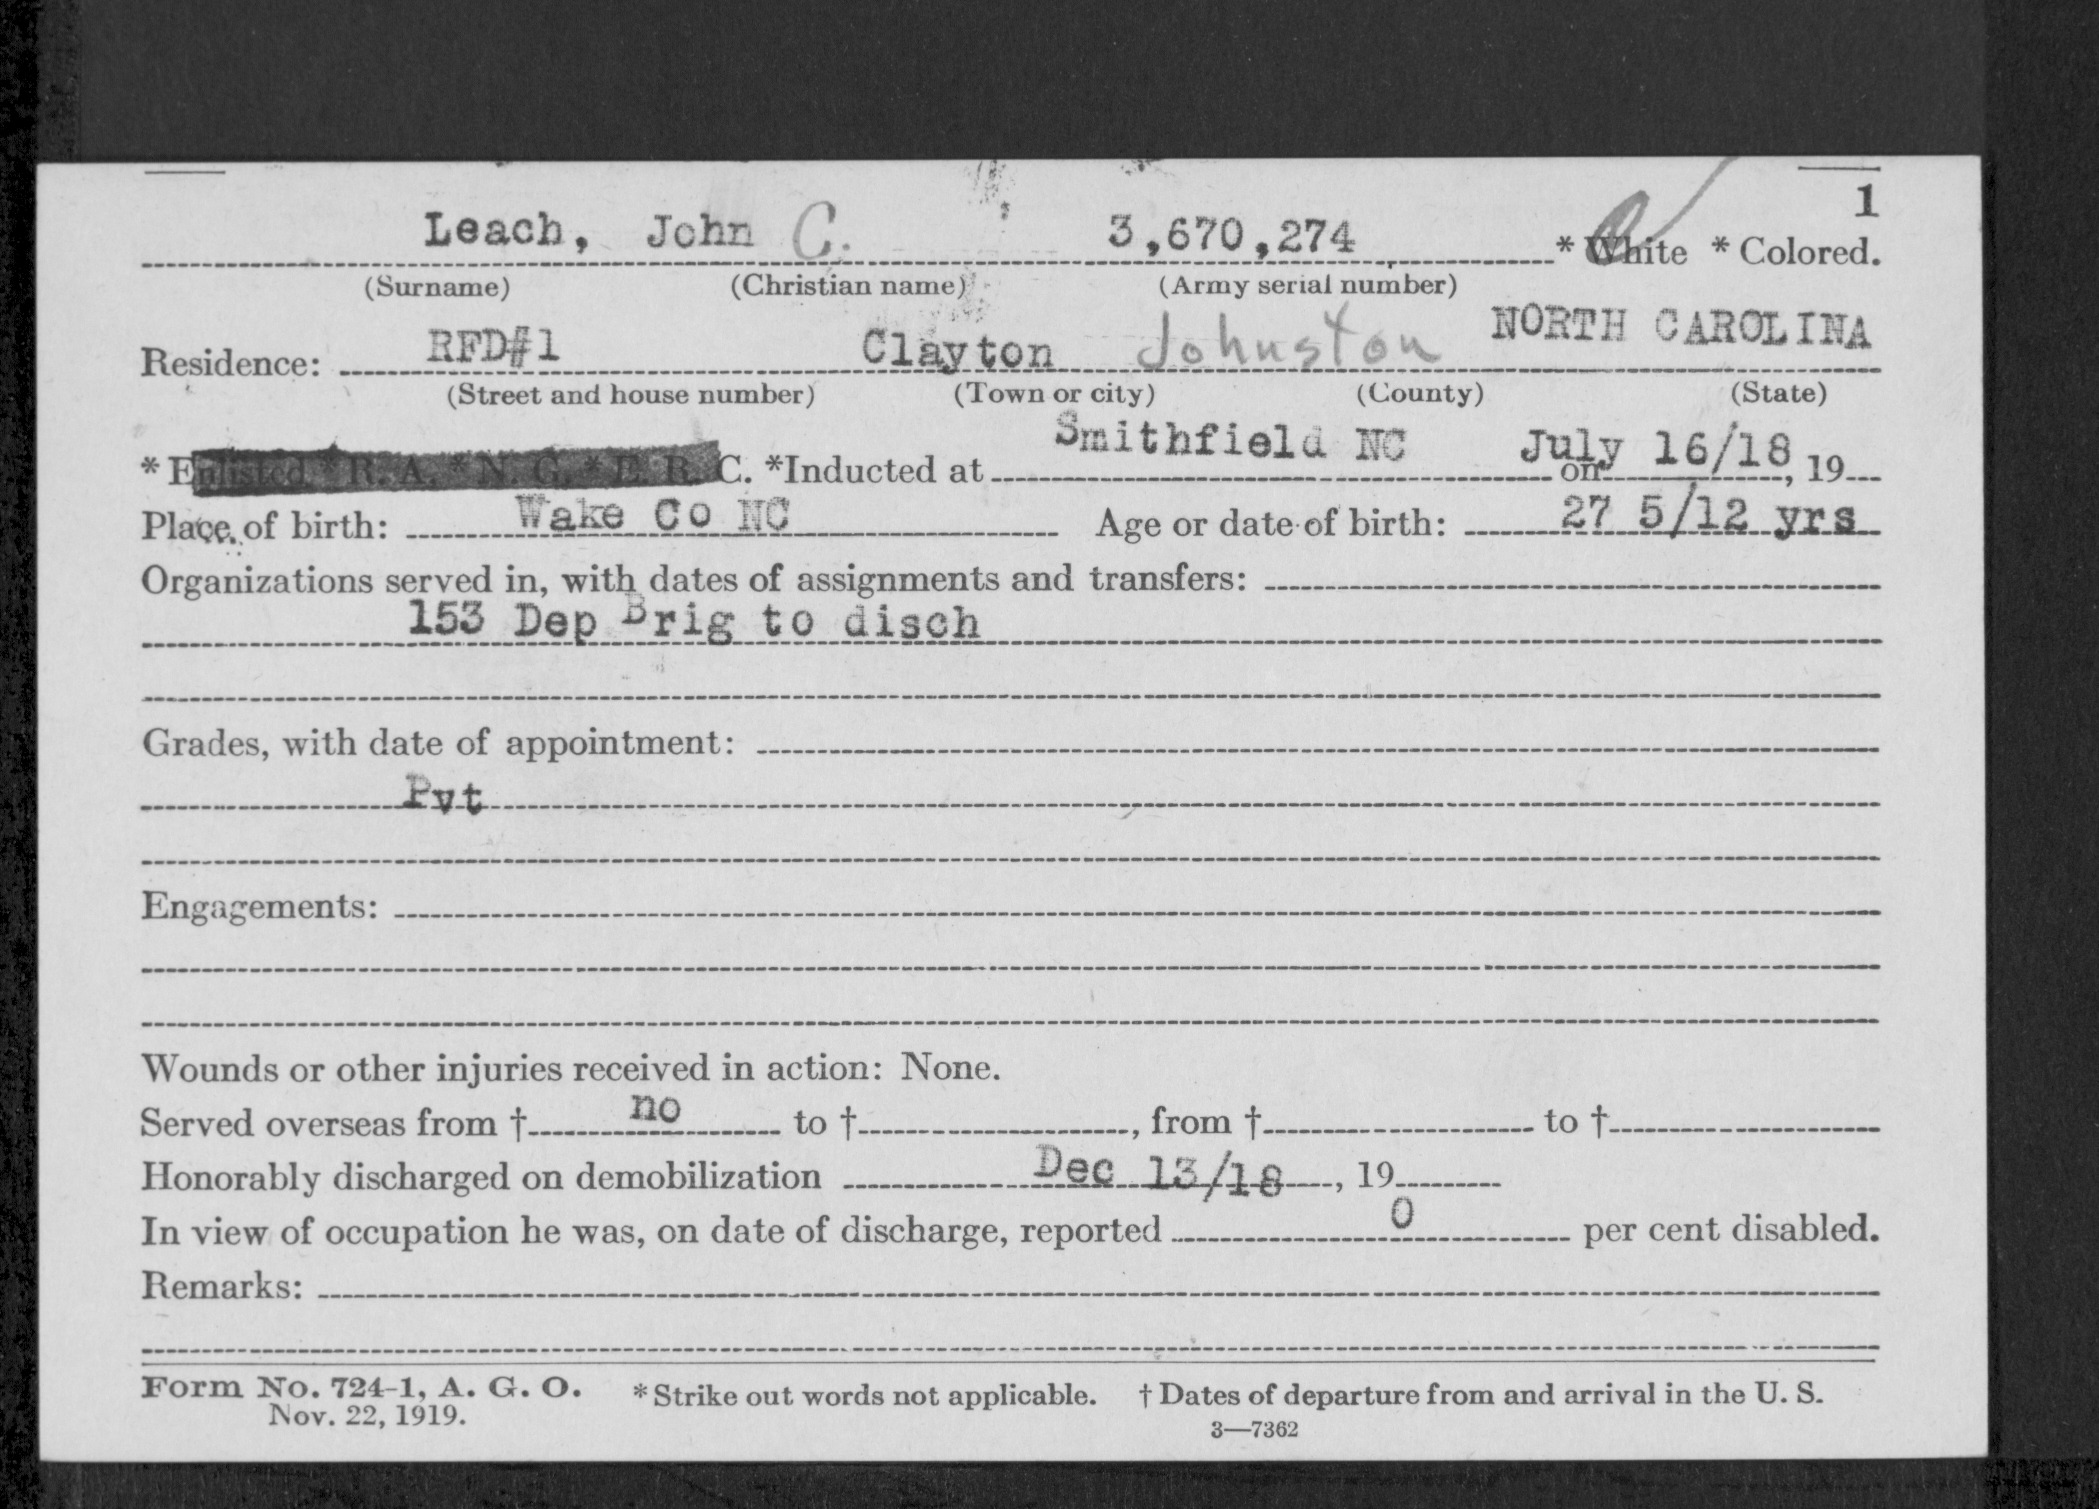 1
Leach, John C. 3,670,274 * White * Colored.
(Surname) (Christian name) (Army serial number)
NORTH CAROLINA
Residence: RFD#1 Clayton Johnston
(Street and house number) (Town or city) (County) (State)
* Enlisted, * R. A. * N. G. * E. R. C. *Inducted at Smithfield NC on July 16/18, 19
Place of birth: Wake Co NC Age or date of birth: 27 5/12 yrs
Organizations served in, with dates of assignments and transfers:
153 Dep Brig to disch
Grades, with date of appointment:
Pvt
Engagements:
Wounds or other injuries received in action: None.
Served overseas from † no to †, from † to †
Honorably discharged on demobilization Dec 13/18, 19
In view of occupation he was, on date of discharge, reported 0 per cent disabled.
Remarks:
Form No. 724-1, A. G. O. * Strike out words not applicable. † Dates of departure from and arrival in the U. S.
Nov. 22, 1919.
3—7362